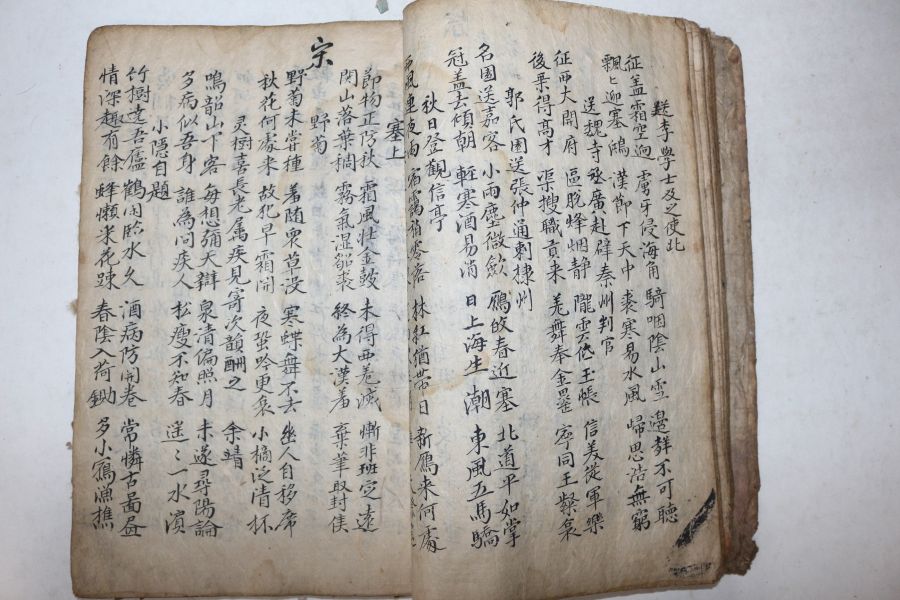 送李學士及之使北
征盖霜空逈 虜牙侵海角 騎咽陰山雪 邊 不可聽
飄〻迎塞鴻 漢節下天中 裘寒易水風 歸思浩無窮
送魏寺丞廣赴辟秦州判官
征西大開府 區脫烽烟静 隴雲低玉帳 信美從軍樂
後乘得高才 渠搜職貢来 羌舞奉金罍 寧同王粲哀
郭氏園送張仲通刺棣州
名園送嘉客 小雨塵微斂 鴈皈春近塞 北道平如掌
冠盖去傾朝 輕寒酒易消 日上海生潮 東風五馬驕
秋日登觀信亭
西風連夜雨 宿靄 林紅猶帶日 新鴈来何處
宋
塞上
節物正防秋 霜風壮金鼓 未得西羌滅 慚非班定遠
関山落葉稠 霧氣湿貂裘 終為大漢羞 棄筆取封侯
野菊
野菊未甞種 着随衆草没 寒蝶舞不去 坐人自移席
秋花何處来 故犯早霜開 夜蛩吟更哀 小摘泛清杯
灵樹喜長老属疾見寄次韻酬之 余靖
鳴韶山下客 每想彌天辯 泉清偏照月 未遂尋陽論
多病似吾身 誰為問疾人 松瘦不知春 遥〻一水濱
小隱自題
竹樹遶吾廬 鶴閒臨水久 酒病防開卷 常憐古啚昼
情深趣有餘 蜂懶采花疎 春陰入荷鋤 多小寫漁樵